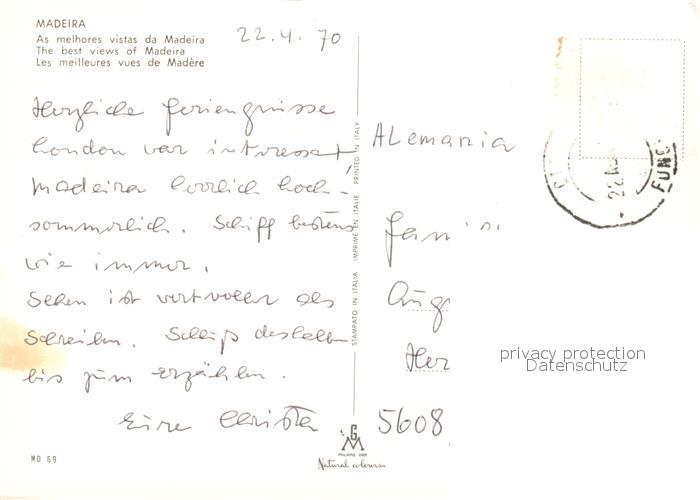 MADEIRA
As melhores vistas da Madeira
The best views of Madeira
Les meilleures vues de Madère
22.4.70
Herzliche Feriengrüsse
London war interessant
Madeira herrlich hoch-
sommerlich. Schiff bestens
wie immer.
Sehen ist wertvoller als
Schreiben. Schluß deshalb
bis zum erzählen.
Eure Christa
MD 69
STAMPATO IN ITALIA IMPRIMÉ EN ITALIE PRINTED IN ITALY
GM
MILANO
Natural colours
Alemania
Fam
Aug
Her
5608
22
FUNC
privacy protection
Datenschutz